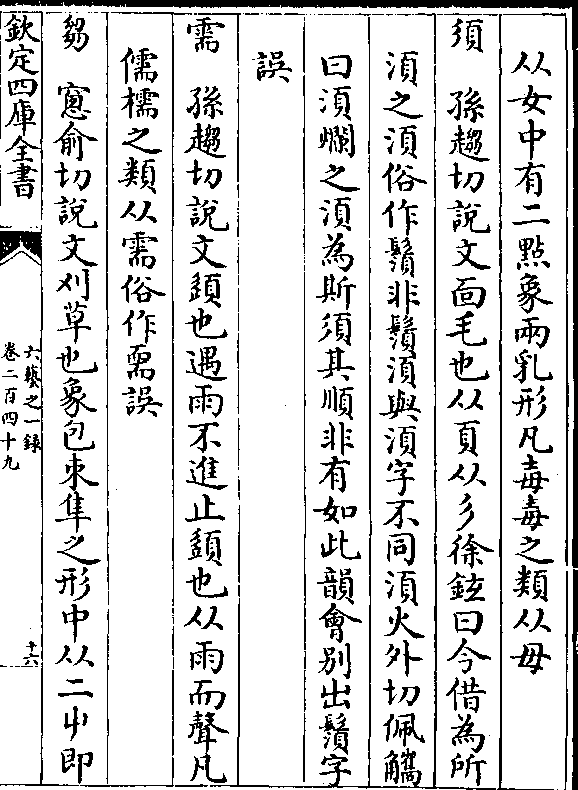 从女中有二點象兩乳形凡毐毒之類从毋
須　孫趨切說文面毛也从頁从彡徐鉉曰今借為所
湏之湏俗作鬚非鬚湏與湏字不同湏火外切佩觿
曰湏爛之湏為斯須其順非有如此韻會别出鬚字
誤
需　孫趨切說文䇓也遇雨不進止䇓也从雨而聲凡
儒檽之類从需俗作需誤
芻　窻俞切說文刈草也象包束隼之形中从二屮即
欽定四庫全書
六藝之一録
卷二百四十九
十六